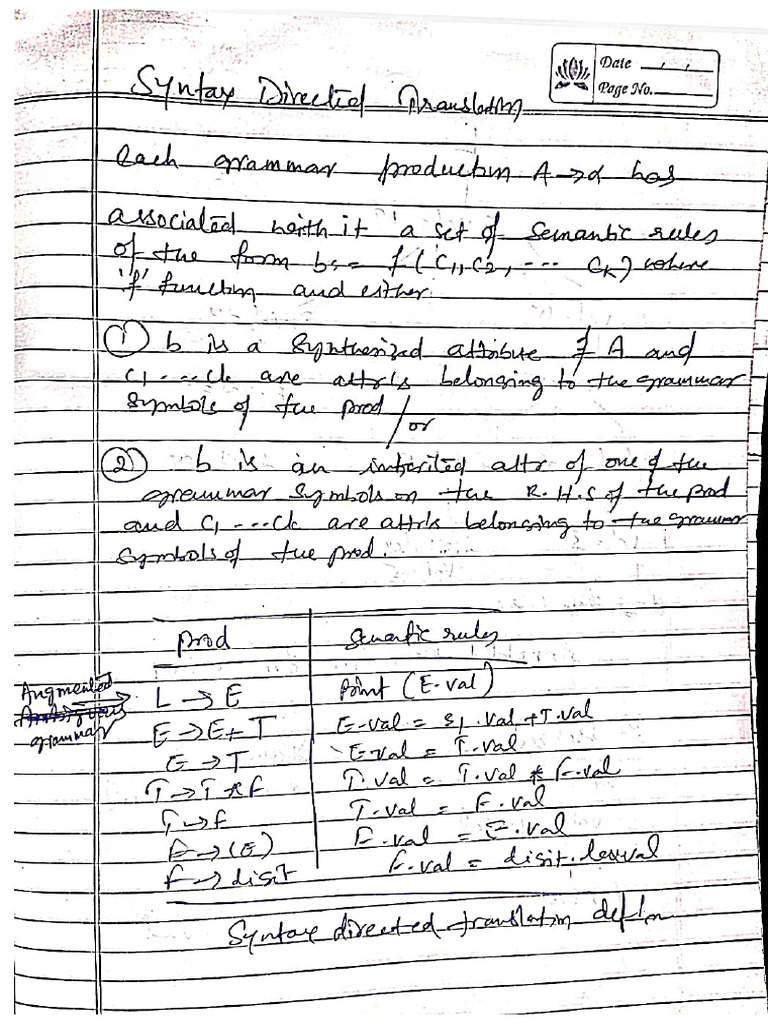 Date
Page No.
Syntax Directed Translation
Each grammar production A → α has
associated with it a set of semantic rules
of the form b := f(C1, C2, ... Ck) where
'f' function and either.
① b is a synthesized attribute of A and
C1 ... Ck are attrls belonging to the grammar
symbols of the prod / or
② b is an inherited attr of one of the
grammar symbols on the R.H.S of the prod
and C1 ... Ck are attrls belonging to the grammar
symbols of the prod.
Prod Semantic rules
Augmented
grammar
L → E Print (E.val)
E → E + T E.val = E1.val + T.val
E → T E.val = T.val
T → T * F T.val = T.val * F.val
T → F T.val = F.val
F → (E) F.val = E.val
F → digit F.val = digit.lexval
Syntax directed translation defin